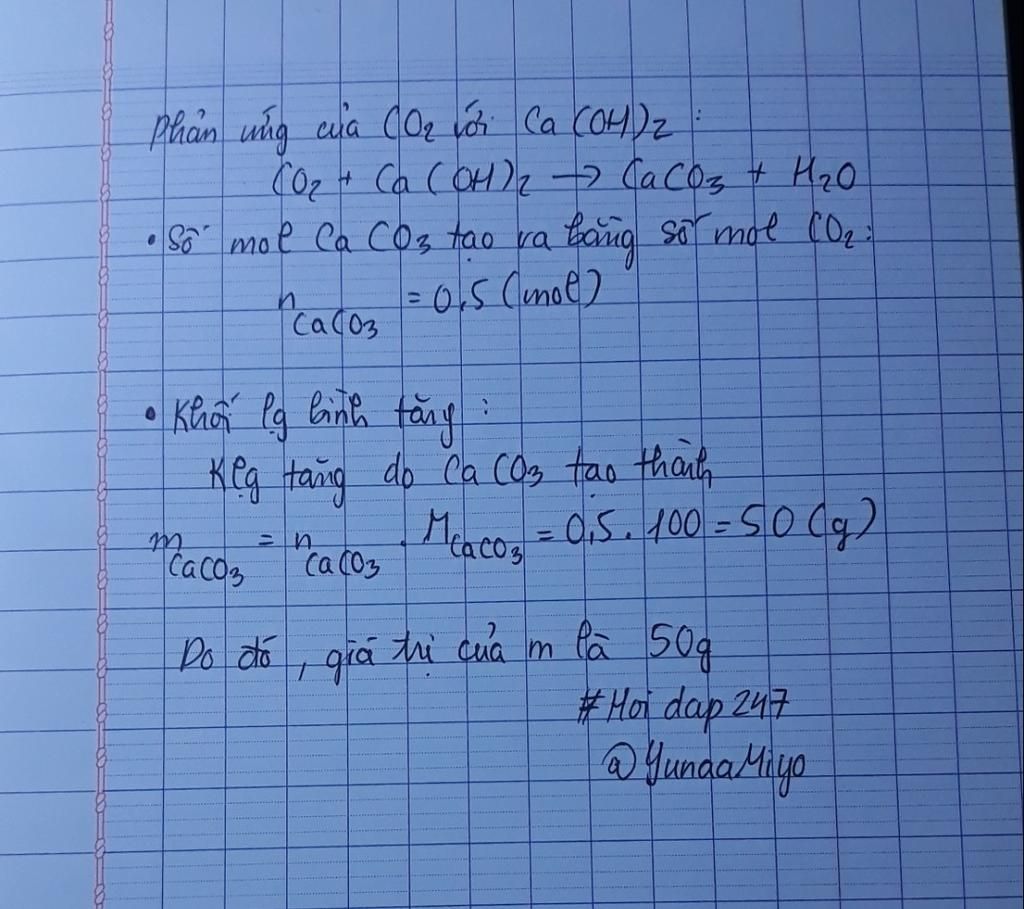 Phản ứng của CO2 với Ca(OH)2:
CO2 + Ca(OH)2 → CaCO3 + H2O
• Số mol CaCO3 tạo ra bằng số mol CO2:
nCaCO3 = 0,5 (mol)
• Khối lg bình tăng:
Klg tăng do CaCO3 tạo thành
mCaCO3 = nCaCO3 . MCaCO3 = 0,5 . 100 = 50 (g)
Do đó, giá trị của m là 50g
#Hoi dap 247
@YundaMiyo